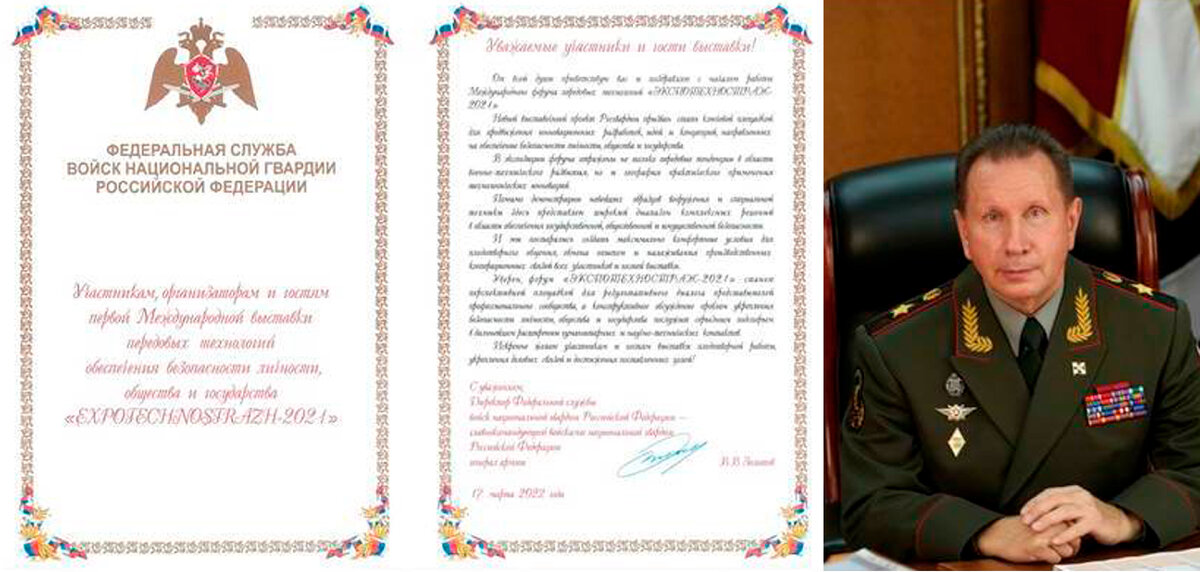 ФЕДЕРАЛЬНАЯ СЛУЖБА
ВОЙСК НАЦИОНАЛЬНОЙ ГВАРДИИ
РОССИЙСКОЙ ФЕДЕРАЦИИ
Участникам, организаторам и гостям
первой Международной выставки
передовых технологий
обеспечения безопасности личности,
общества и государства
«EXPOTECHNOSTRAZH-2021»
Уважаемые участники и гости выставки!
От всей души приветствую вас и поздравляю с началом работы
Международного форума передовых технологий «ЭКСПОТЕХНОСТРАЖ-
2021»
Новый выставочный проект Росгвардии призван стать ключевой площадкой
для продвижения инновационных разработок, идей и концепций, направленных
на обеспечение безопасности личности, общества и государства.
В экспозиции форума отражены не только передовые тенденции в области
военно-технического развития, но и география практического применения
технологических инноваций.
Помимо демонстрации новейших образцов вооружения и специальной
техники здесь представлен широкий диапазон комплексных решений
в области обеспечения государственной, общественной и имущественной безопасности.
И мы постарались создать максимально комфортные условия для
плодотворного общения, обмена опытом и налаживания производственных
кооперационных связей всех участников и гостей выставки.
Уверен, форум «ЭКСПОТЕХНОСТРАЖ-2021» станет
перспективной площадкой для результативного диалога представителей
профессионального сообщества, а конструктивное обсуждение проблем укрепления
безопасности личности, общества и государства послужит серьезным подспорьем
в дальнейшем расширении гуманитарных и научно-технических контактов.
Искренне желаю участникам и гостям выставки плодотворной работы,
укрепления деловых связей и достижения поставленных целей!
С уважением,
Директор Федеральной службы
войск национальной гвардии Российской Федерации –
главнокомандующий войсками национальной гвардии
Российской Федерации
генерал армии
В.В. Золотов
17 марта 2022 года